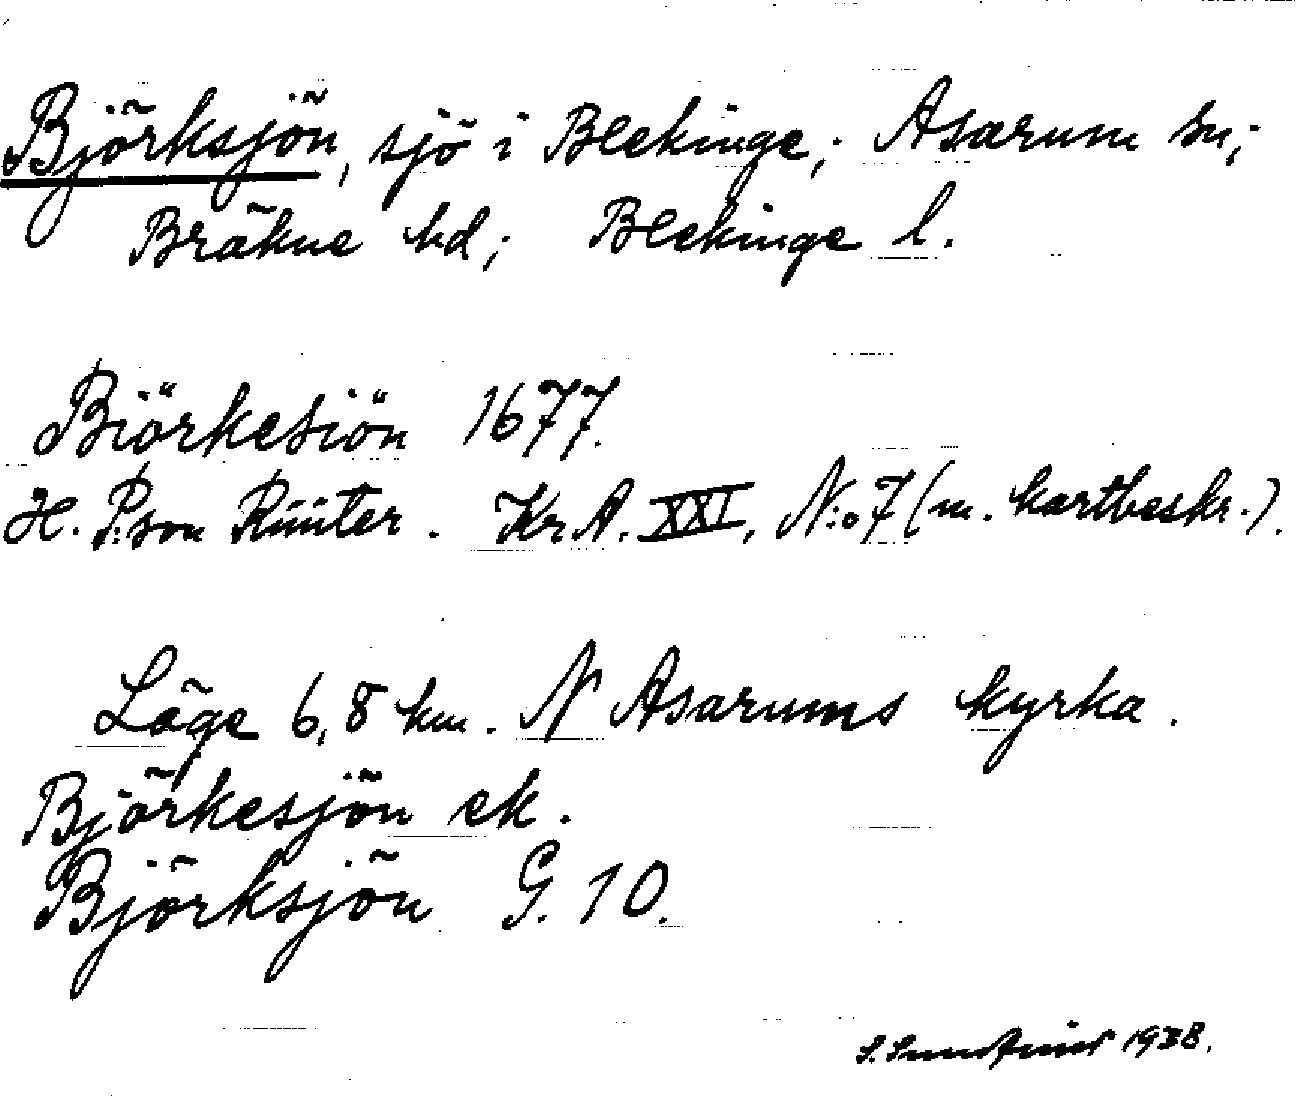 Björksjön, sjö i Blekinge; Asarum sn;
Bräkne hd; Blekinge l.
Biörkesiön 1677.
H. P:son Rüüter. Kr.A. XXI, N:o 7 (m. kartbeskr.).
Läge 6,8 km. N Asarums kyrka.
Björkesjön ek.
Björksjön G. 10.
1938.